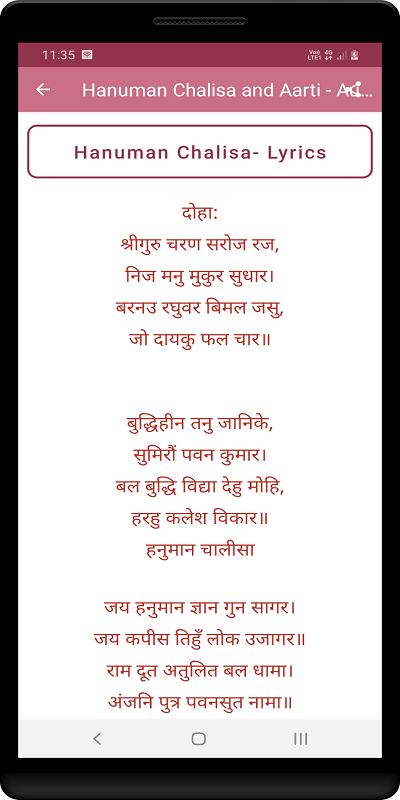 11:35
Vo)) 4G
LTE1
Hanuman Chalisa and Aarti - A
Hanuman Chalisa- Lyrics
दोहा:
श्रीगुरु चरण सरोज रज,
निज मनु मुकुर सुधार।
बरनउ रघुवर बिमल जसु,
जो दायकु फल चार॥
बुद्धिहीन तनु जानिके,
सुमिरौं पवन कुमार।
बल बुद्धि विद्या देहु मोहि,
हरहु कलेश विकार॥
हनुमान चालीसा
जय हनुमान ज्ञान गुन सागर।
जय कपीस तिहुँ लोक उजागर॥
राम दूत अतुलित बल धामा।
अंजनि पुत्र पवनसुत नामा॥